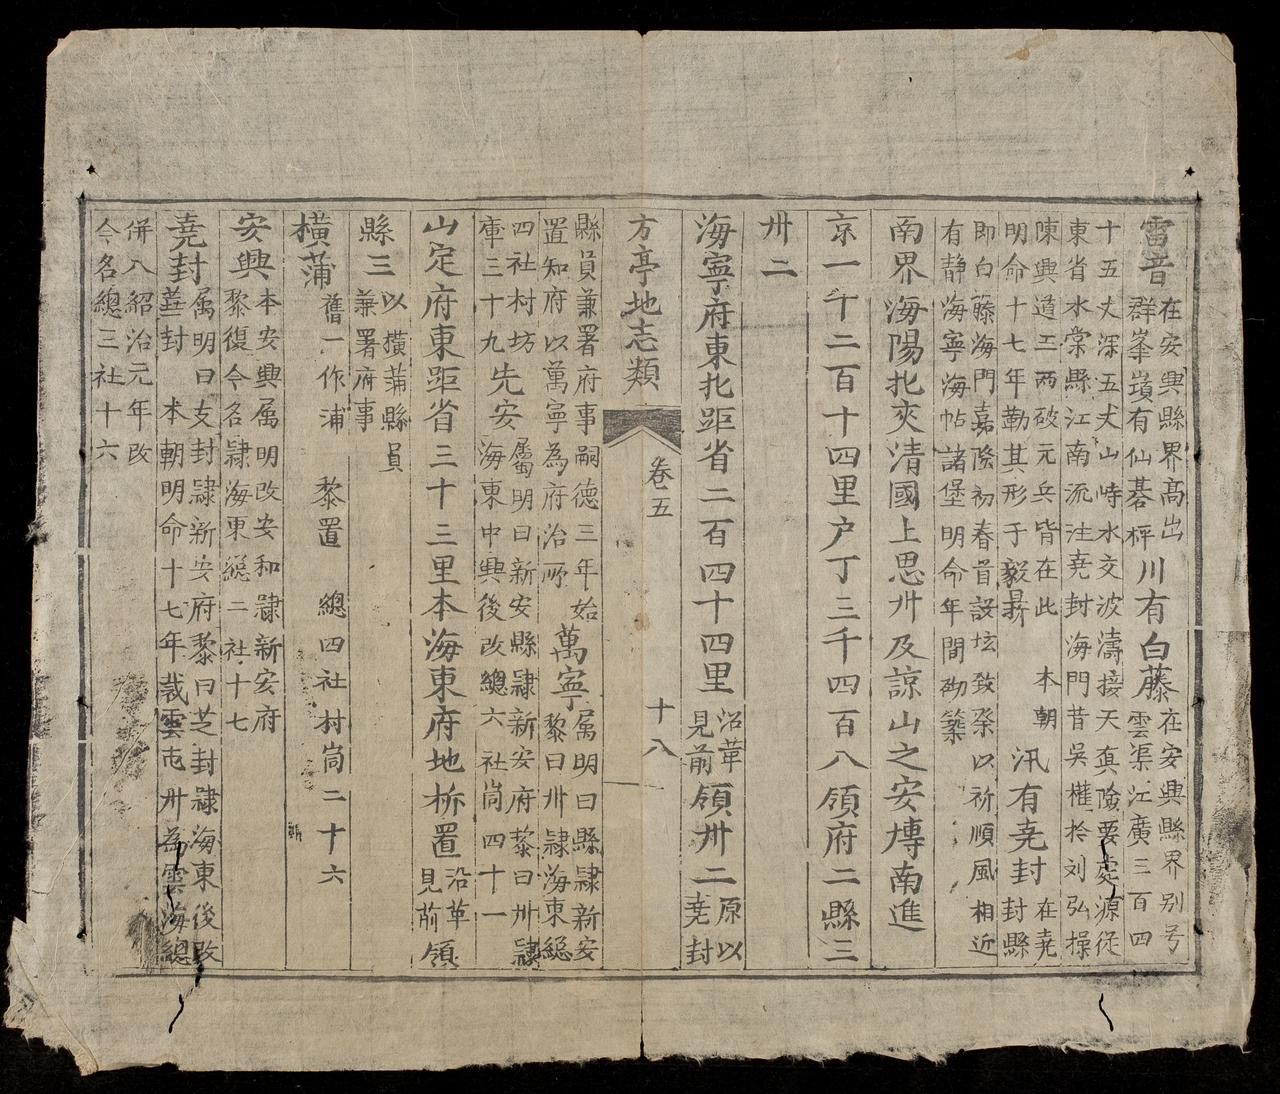 雷音在安興縣界高出群峯巔有仙碁枰川有白藤在安興縣界別号雲渠江廣三百四
十五丈深五丈山峙水交波濤接天真險要處源從
東省水棠縣江南流注堯封海門昔吳權於刘弘操
陳興道工两破元兵皆在此　本朝
明命十七年勒其形于毅鼎汛有堯封在堯封縣
即白藤海門嘉隆初春首設坛致祭以祈順風相近
有靜海寧海帖諸堡明命年間砌築
南界海陽北夾清國上思州及諒山之安博南進
京一千二百十四里户丁三千四百八領府二縣三
州二
海寧府東北距省二百四十四里沿革見前領州二原以堯封
方亭地志類　卷五　十八
縣員兼署府事嗣德三年始
置知府以萬寧為府治所萬寧属明曰縣隷新安黎曰州隷海東總
四社村坊
庫三十九先安屬明曰新安縣隷新安府黎曰州隷海東中興後改總六社峝四十一
山定府東距省三十三里本海東府地柝置沿革見前領
縣三以橫蒲縣員兼署府事
橫蒲舊一作浦　黎置　總四社村峝二十六
安興本安興属明改安和隷新安府黎復今名隷海東總二社十七
堯封属明曰支封隷新安府黎曰芝封隷海東後改華封　本朝明命十七年裁雲屯州為雲海總
併入紹治元年改
今名總三社十六